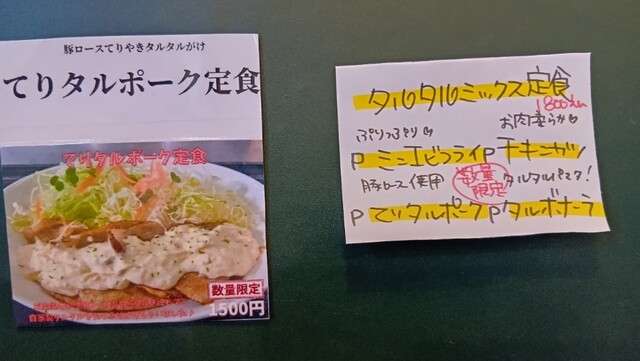 豚ロースてりやきタルタルがけ
てりタルポーク定食
てりタルポーク定食
数量限定
1500円
タルタルミックス定食
1800えん
ぷりっぷり♡ お肉柔らか♡
P ミニエビフライ P チキンカツ
豚ロース使用 数量限定 タルタルパスタ!
P てりタルポーク P タルボナーラ